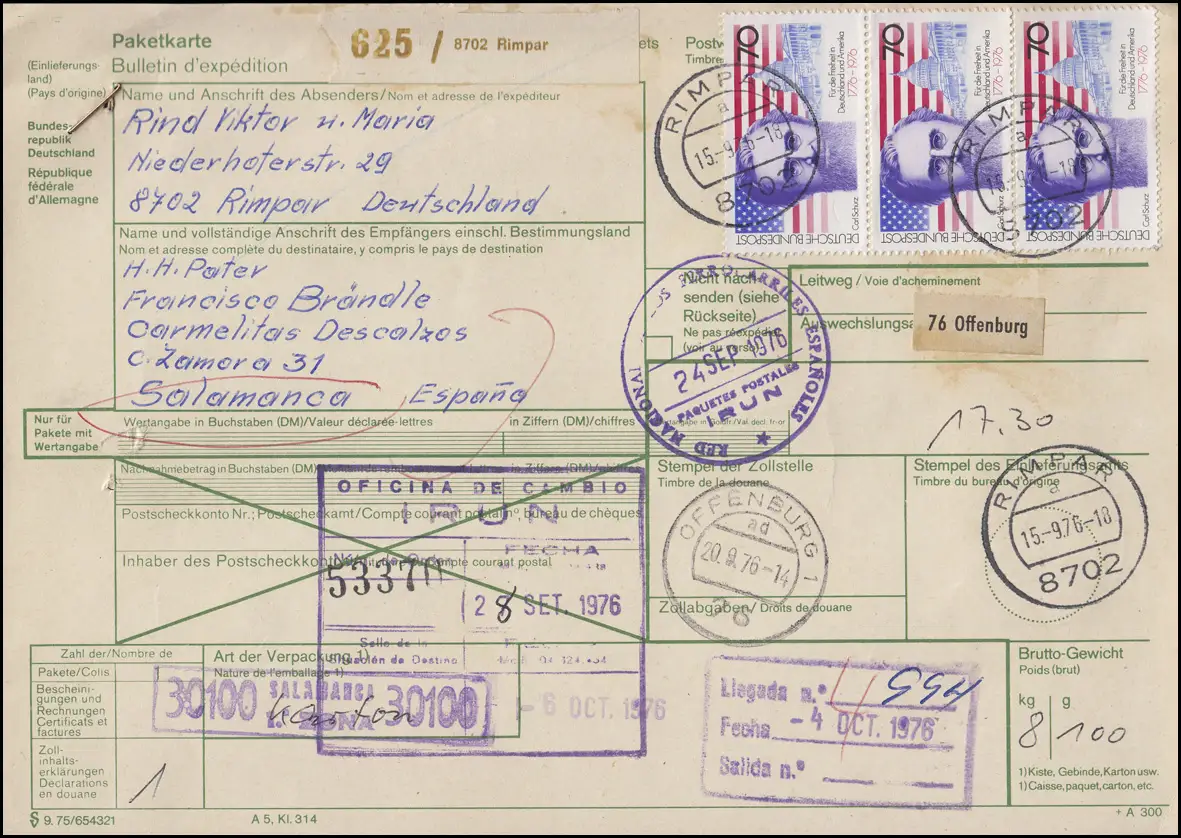 Paketkarte
Bulletin d'expédition
625 / 8702 Rimpar
(Einlieferungs-
land)
(Pays d'origine)
Bundes-
republik
Deutschland
République
fédérale
d'Allemagne
Name und Anschrift des Absenders/Nom et adresse de l'expéditeur
Rind Viktor u. Maria
Niederhoferstr. 29
8702 Rimpar Deutschland
Name und vollständige Anschrift des Empfängers einschl. Bestimmungsland
Nom et adresse complète du destinataire, y compris le pays de destination
H.H. Pater
Francisco Brändle
Carmelitas Descalzos
C. Zamora 31
Salamanca España
Timbre
70
Für die Freiheit in
Deutschland und Amerika
1776-1976
Carl Schurz
DEUTSCHE BUNDESPOST
70
Für die Freiheit in
Deutschland und Amerika
1776-1976
Carl Schurz
DEUTSCHE BUNDESPOST
70
Für die Freiheit in
Deutschland und Amerika
1776-1976
Carl Schurz
DEUTSCHE BUNDESPOST
RIMPAR
a
15.-9.76-18
8702
RIMPAR
a
15.-9.76-18
8702
Nicht nach-
senden (siehe
Rückseite)
Ne pas réexpédier
(voir au verso)
RED NACIONAL DE LOS FERROCARRILES ESPAÑOLES
24 SEP 1976
PAQUETES POSTALES
IRUN
Leitweg / Voie d'acheminement
76 Offenburg
17,30
Nur für
Pakete mit
Wertangabe
Wertangabe in Buchstaben (DM)/Valeur déclarée-lettres
in Ziffern (DM)/chiffres
Nachnahmebetrag in Buchstaben (DM)
in Ziffern (DM)/chiffres
Postscheckkonto Nr.; Postscheckamt/Compte courant postal n° bureau de chèques
Inhaber des Postscheckkontos
compte courant postal
OFICINA DE CAMBIO
IRUN
FECHA
53370
28 SET. 1976
Situación de Destino
Stempel der Zollstelle
Timbre de la douane
OFFENBURG 1
ad
20.9.76-14
76
Zollabgaben/Droits de douane
Stempel des Einlieferungsamts
Timbre du bureau d'origine
RIMPAR
a
15.-9.76-18
8702
Zahl der/Nombre de
Pakete/Colis
Bescheini-
gungen und
Rechnungen
Certificats et
factures
Zoll-
inhalts-
erklärungen
Déclarations
en douane
1
Art der Verpackung 1)
Nature de l'emballage 1)
Karton
30100 SALAMANCA 30100
- 6 OCT. 1976
Llegada n.° 554
Fecha - 4 OCT. 1976
Salida n.°
Brutto-Gewicht
Poids (brut)
kg g
8 100
1) Kiste, Gebinde, Karton usw.
1) Caisse, paquet, carton, etc.
9.75/654321
A 5, Kl. 314
+ A 300